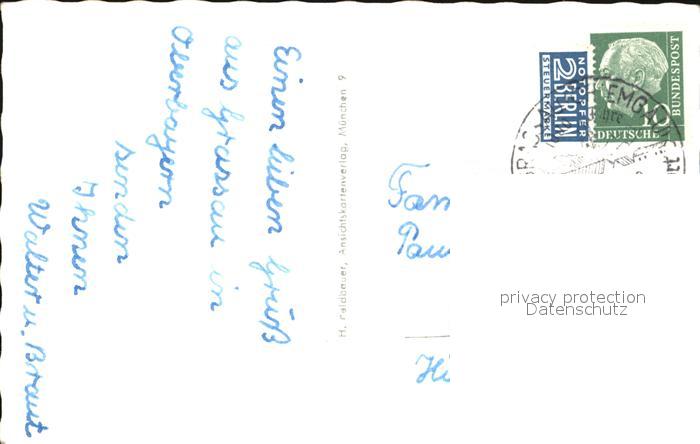 Einen lieben Gruß
aus Grassau in
Oberbayern
senden
Ihnen
Walter u. Braut
H. Faldbauer, Ansichtskartenverlag, München 9
NOTOPFER
2 BERLIN
STEUERMARKE
10
DEUTSCHE
BUNDESPOST
Fam
Pau
Hi
privacy protection
Datenschutz